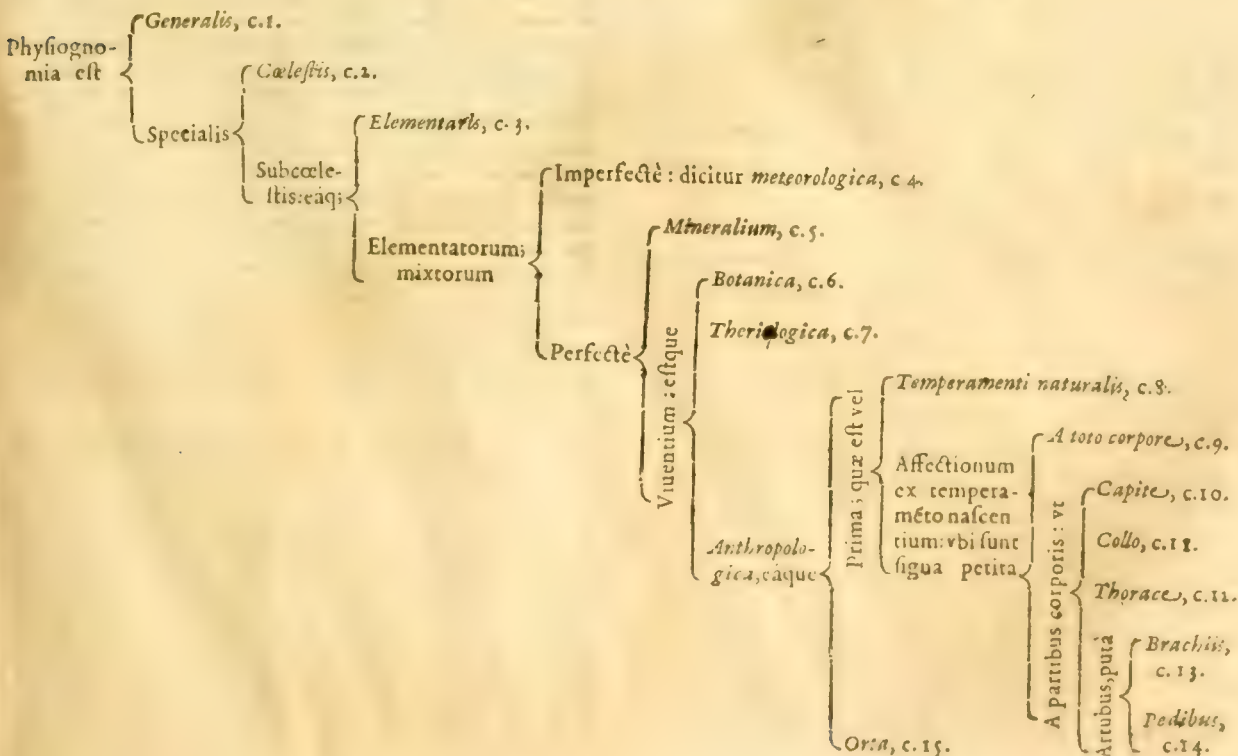 Physiogno-
mia est
Generalis, c.1.
Specialis
Cœlestis, c.2.
Subcœle-
stis:eáq;
Elementaris, c.3.
Elementatorum;
mixtorum
Imperfectè : dicitur meteorologica, c 4.
Perfectè
Mineralium, c.5.
Viuentium : estque
Botanica, c.6.
Theriologica, c.7.
Anthropolo-
gica, eáque
Prima ; quæ est vel
Temperamenti naturalis, c.8.
Affectionum
ex tempera-
mẽto nascen
tium:vbi sunt
signa petita
A toto corpore, c.9.
A partibus corporis : vt
Capite, c.10.
Collo, c.11.
Thorace, c.12.
Artubus, putà
Brachiis,
c.13.
Pedibus,
c.14.
Orta, c.15.